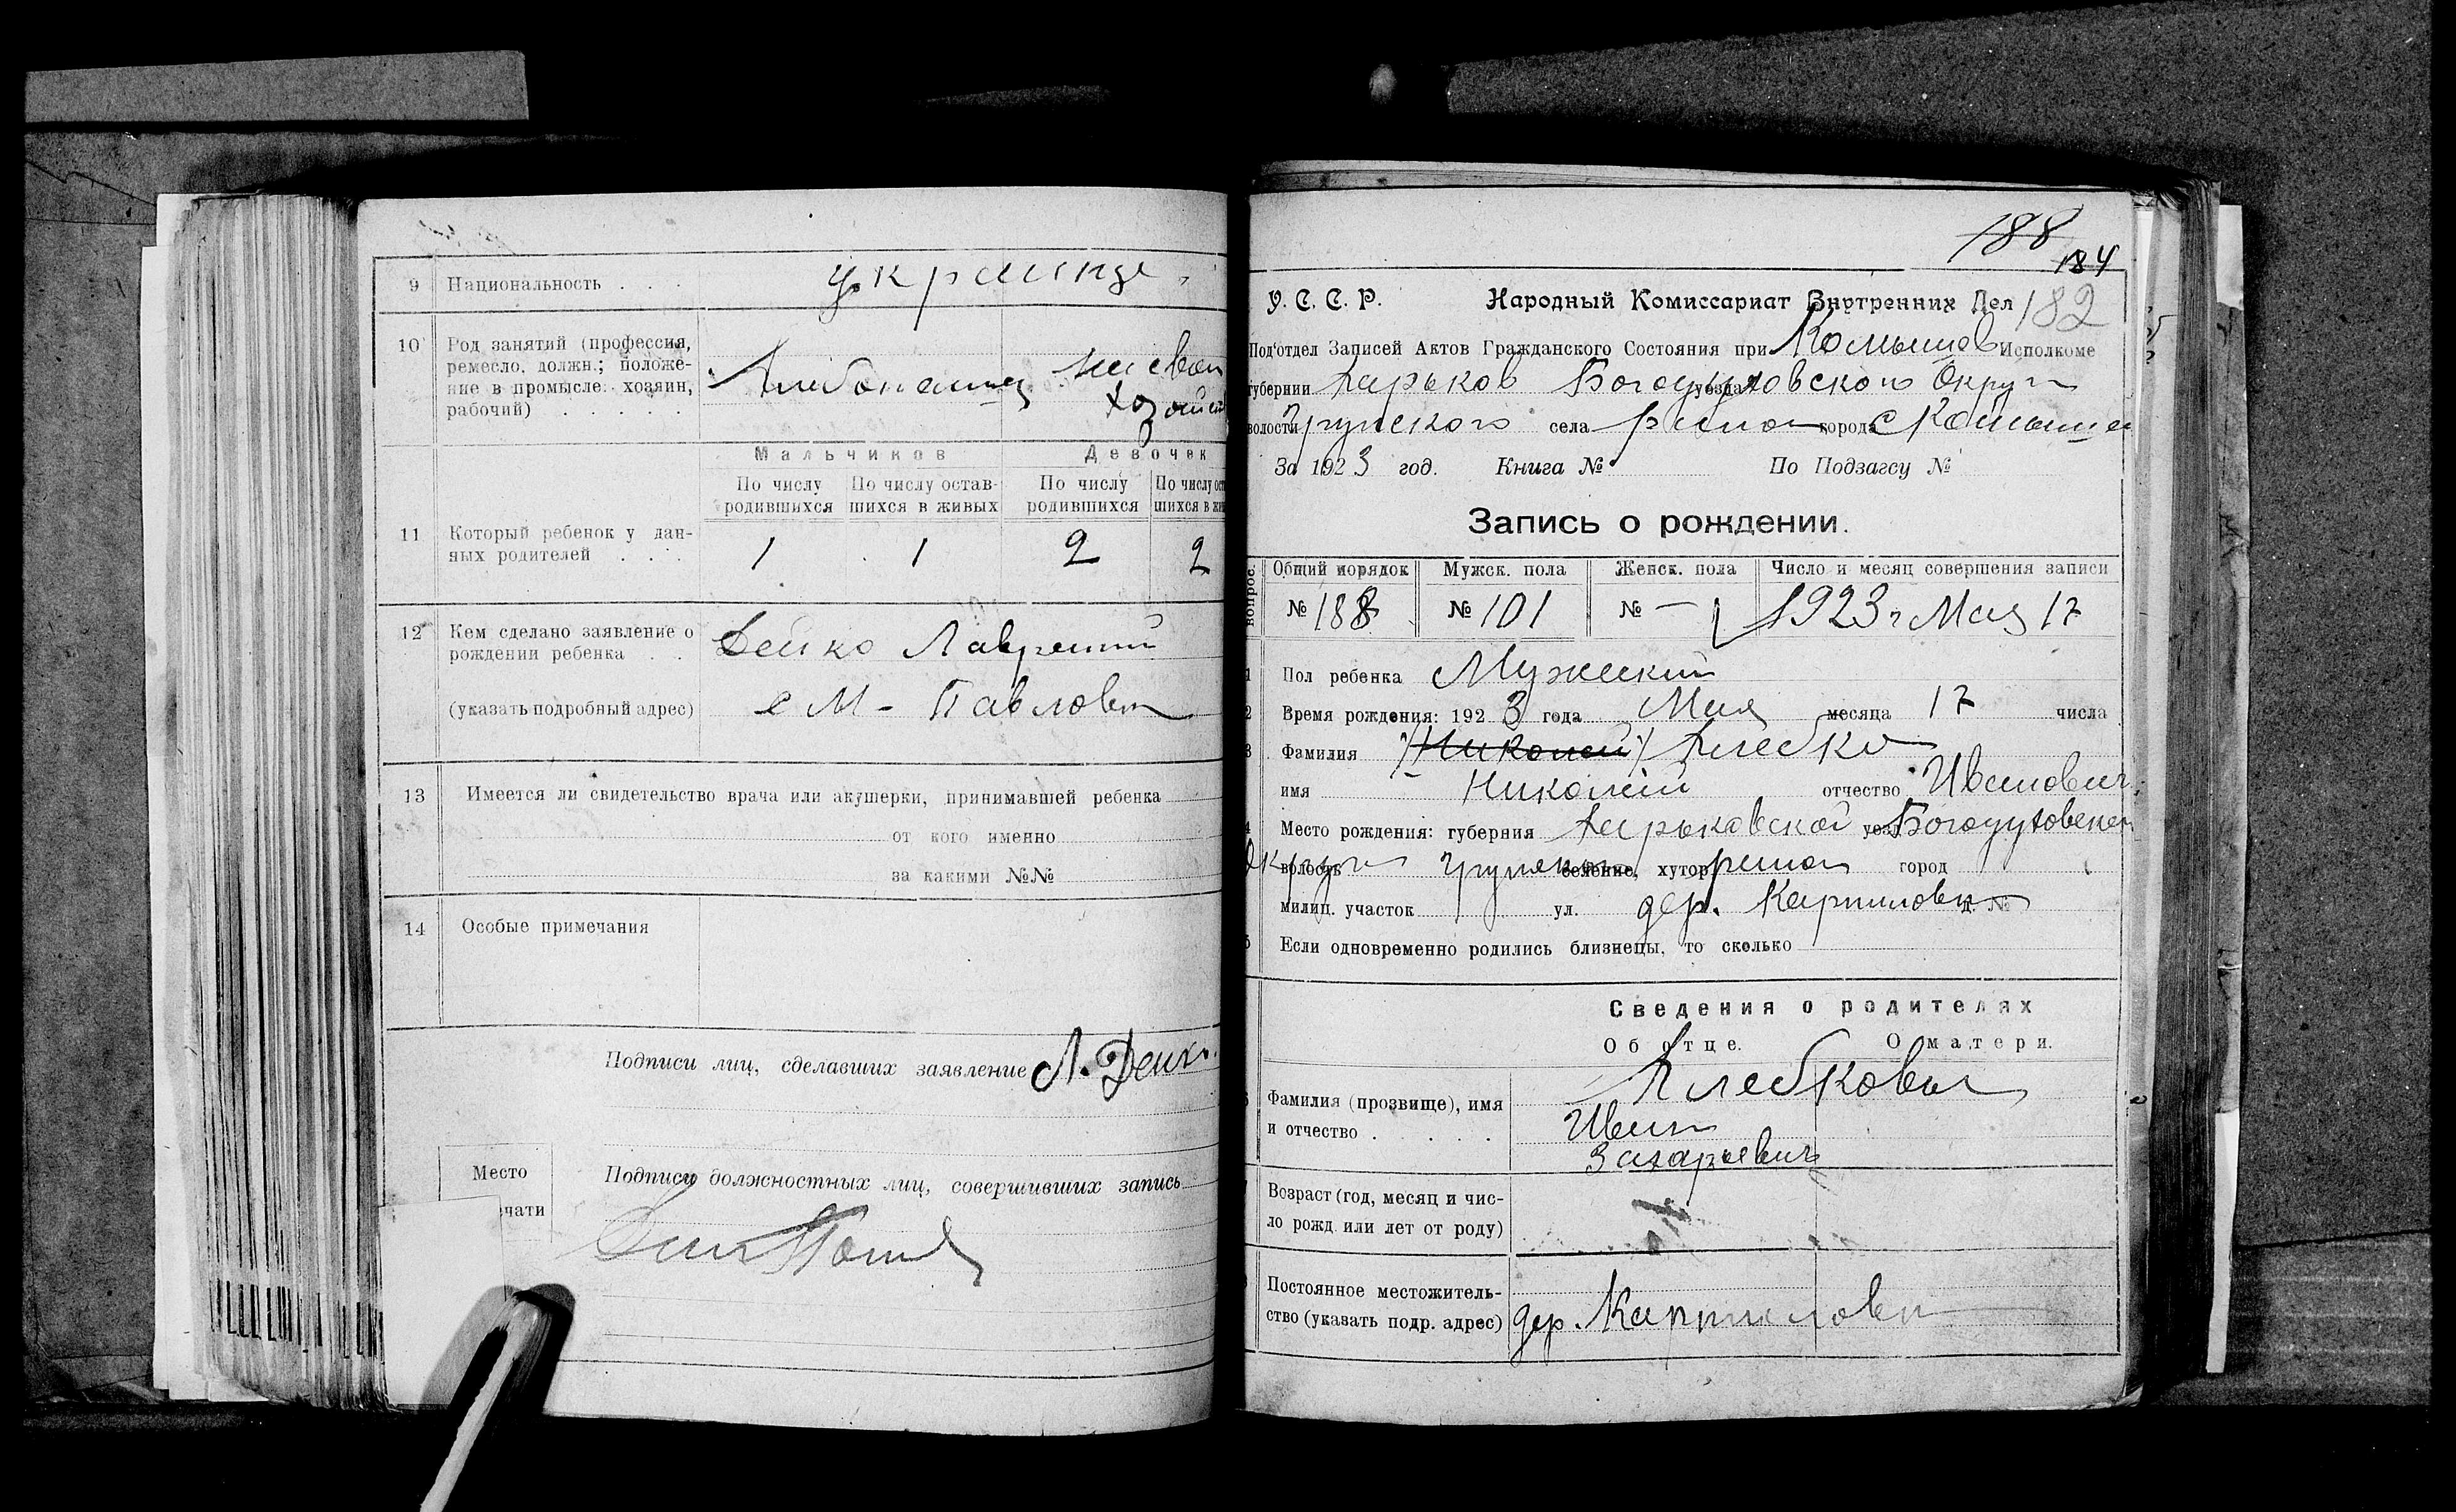 9 Национальность . . . украинцы
10 Род занятий (профессия, ремесло, должн.; положение в промысле: хозяин, рабочий) . . . . . Хлебопашец на своем хозяйст
Мальчиков Девочек
По числу родившихся По числу оставшихся в живых По числу родившихся По числу ос шихся в жи
11 Который ребенок у данных родителей . . . 1 1 2 2
12 Кем сделано заявление о рождении ребенка . . Дейко Лаврентий
(указать подробный адрес) с М-Павловка
13 Имеется ли свидетельство врача или акушерки, принимавшей ребенка
от кого именно
за какими №№
14 Особые примечания
Подписи лиц, сделавших заявление Л. Дейко
Место
чати
Подписи должностных лиц, совершивших запись
188
184
У. С. С. Р. Народный Комиссариат Внутренних Дел 182
Под'отдел Записей Актов Гражданского Состояния при Комышов Исполкоме
губернии Харьков уезда Богодуховского Округа
волости Грунского села района города с Комыши
За 1923 год. Книга № По Подзагсу №
Запись о рождении.
вопрос. Общий порядок Мужск. пола Женск. пола Число и месяц совершения записи
№ 188 № 101 № — 1923 г Мая 17
1 Пол ребенка Мужеский
2 Время рождения: 1923 года Мая месяца 17 числа
3 Фамилия (Николай) Хлебко
имя Николай отчество Иванович
4 Место рождения: губерния Харьковской уезд Богодуховской
округа волость Грунского селение, хутор район город
милиц. участок ул. дер. Карпиловка д. №
5 Если одновременно родились близнецы, то сколько
Сведения о родителях
Об отце. О матери.
Фамилия (прозвище), имя и отчество . . . . Хлебковы
Иван
Захарьевич
Возраст (год, месяц и число рожд. или лет от роду)
Постоянное местожительство (указать подр. адрес) дер. Карпиловка